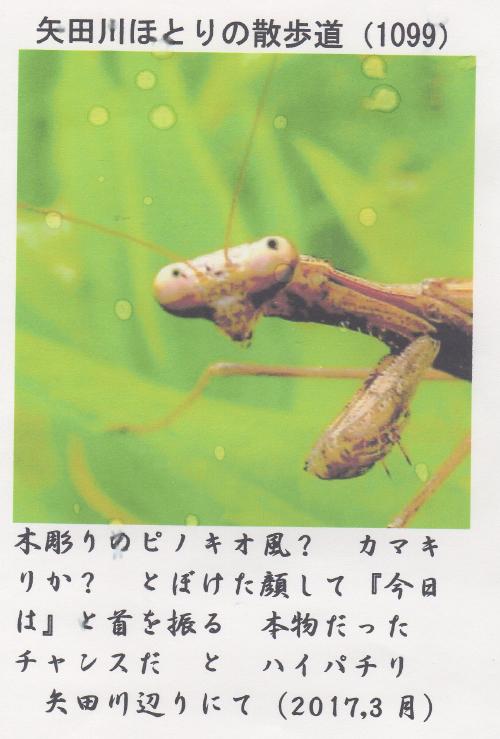 矢田川ほとりの散歩道（1099）
木彫りのピノキオ風？　カマキ
リか？　とぼけた顔して『今日
は』と首を振る　本物だった
チャンスだ　と　ハイパチリ
矢田川辺りにて（2017,3 月）